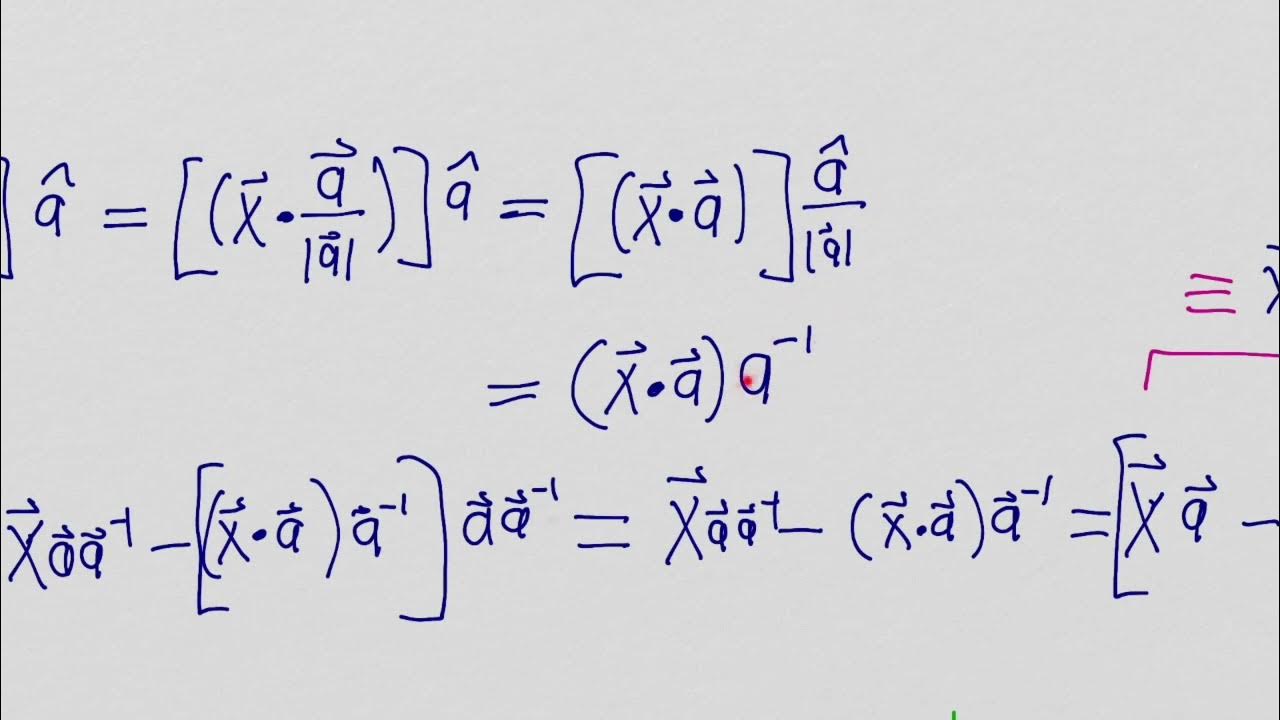 ] â = [(x⃗ · a⃗/|a⃗|)] â = [(x⃗ · a⃗)] â/|a⃗|
≡ x⃗
= (x⃗ · a⃗) a⁻¹
x⃗ a⃗ a⃗⁻¹ − [(x⃗ · a⃗) a⃗⁻¹] a⃗ a⃗⁻¹ = x⃗ a⃗ a⃗⁻¹ − (x⃗ · a⃗) a⃗⁻¹ = [x⃗ a⃗ −